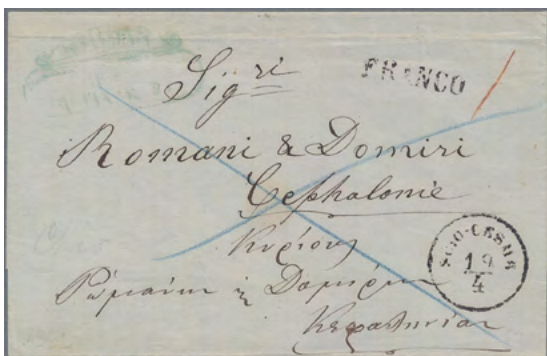 FRANCO
Sig<sup>ri</sup>
Romani & Domiri
Cephalonie
Κυρίους
Ρώμανιν & Δομίρην
Κεφαλληνίαν
SCIO-CESME
19
4